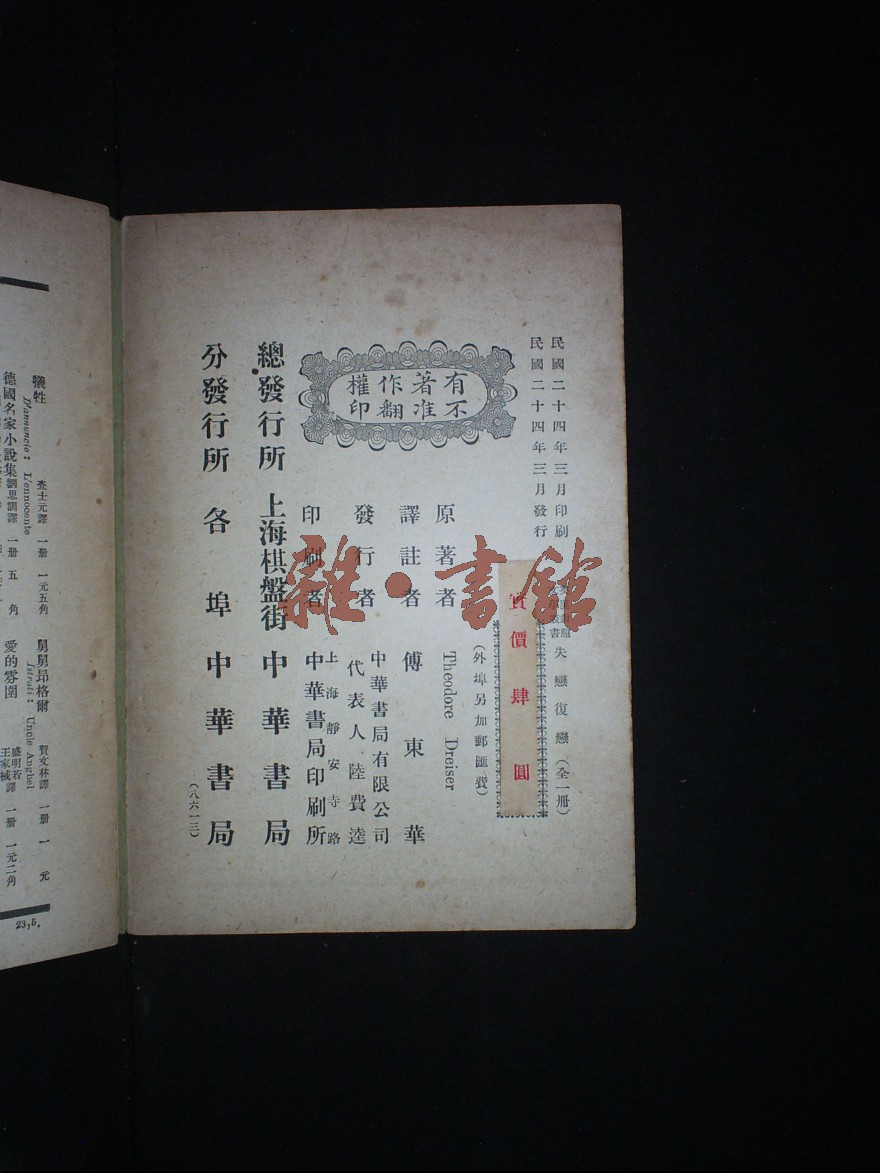 民國二十四年三月印刷
民國二十四年三月發行
失戀復戀（全一冊）
實價肆圓
（外埠另加郵匯費）
有著作權
不准翻印
原著者 Theodore Dreiser
譯註者 傅東華
發行者 中華書局有限公司
代表人 陸費逵
印刷者 上海靜安寺路
中華書局印刷所
總發行所 上海棋盤街 中華書局
分發行所 各埠中華書局
（八六一三）
雜·書館
犧牲 查士元譯 一冊 一元五角
D'annunzio: L'ennocente
德國名家小說集 劉思訓譯 一冊 五角
舅舅昂格爾 賀文林譯 一冊 一元
Istrati: Uncle Anghel
愛的雰圍 盛明若 王家棫譯 一冊 一元二角
23,5.